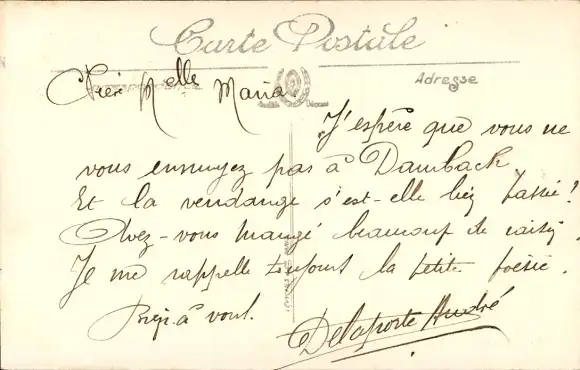 Carte Postale
Correspondance
Adresse
Chère Melle Maria.
J'espère que vous ne
vous ennuyez pas à Dambach
Et la vendange s'est-elle bien passée?
Avez-vous mangé beaucoup de raisin.
Je me rappelle toujours la petite poésie.
à vous.
Delaporte André